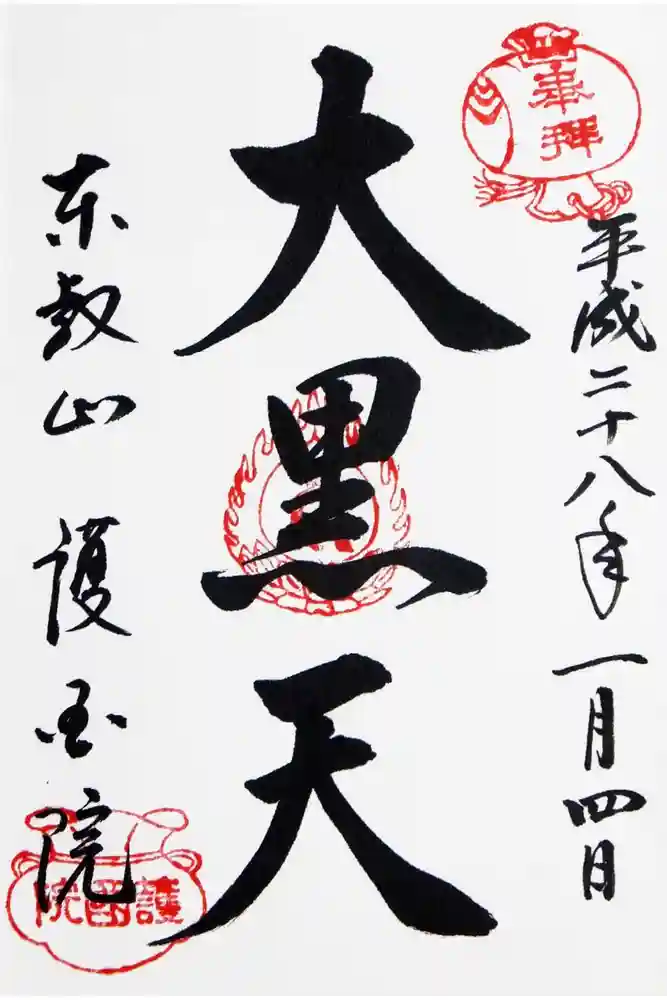 奉拝
平成二十八年一月四日
大黒天
东叡山 護国院
護國院